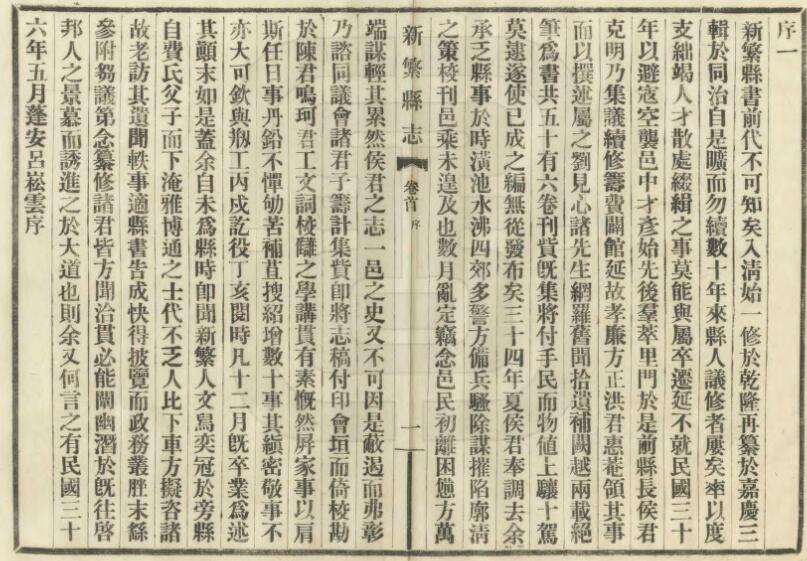 序一
新繁縣書前代不可知矣入淸始一修於乾隆再纂於嘉慶三
輯於同治自是曠而勿續數十年來縣人議修者屢矣率以度
支絀竭人才散處綴緝之事莫能與屬卒遷延不就民國三十
年以避寇空襲邑中才彥始先後羣萃里門於是前縣長侯君
克明乃集議續修籌費闢館延故孝廉方正洪君惠菴領其事
而以撰述屬之劉見心諸先生網羅舊聞拾遺補闕越兩載絕
筆爲書共五十有六卷刊貲旣集將付手民而物値上驤十駕
莫逮遂使已成之編無從發布矣三十四年夏侯君奉調去余
承乏縣事於時潢池水沸四郊多警方備兵騷除謀摧陷廓淸
之策校刊邑乘未遑及也數月亂定竊念邑民初離困憊方萬
新繁縣志
卷首
序
一
端謀輕其累然侯君之志一邑之史又不可因是蔽遏而弗彰
乃諮同議會諸君子籌計集貲卽將志稿付印會垣而倚校勘
於陳君鳴珂君工文詞校讎之學講貫有素慨然屏家事以肩
斯任日事丹鉛不憚劬苦補苴搜紹增數十事其縝密敬事不
亦大可欽與剏工丙戌訖役丁亥閱時凡十二月旣卒業爲述
其顚末如是蓋余自未爲縣時卽聞新繁人文鳥奕冠於旁縣
自費氏父子而下淹雅博通之士代不乏人比下車方擬咨諸
故老訪其遺聞軼事適縣書告成快得披覽而政務叢脞末繇
參附芻議第念纂修諸君皆方聞治貫必能闡幽潛於旣往啓
邦人之景慕而誘進之於大道也則余又何言之有民國三十
六年五月蓬安呂崧雲序